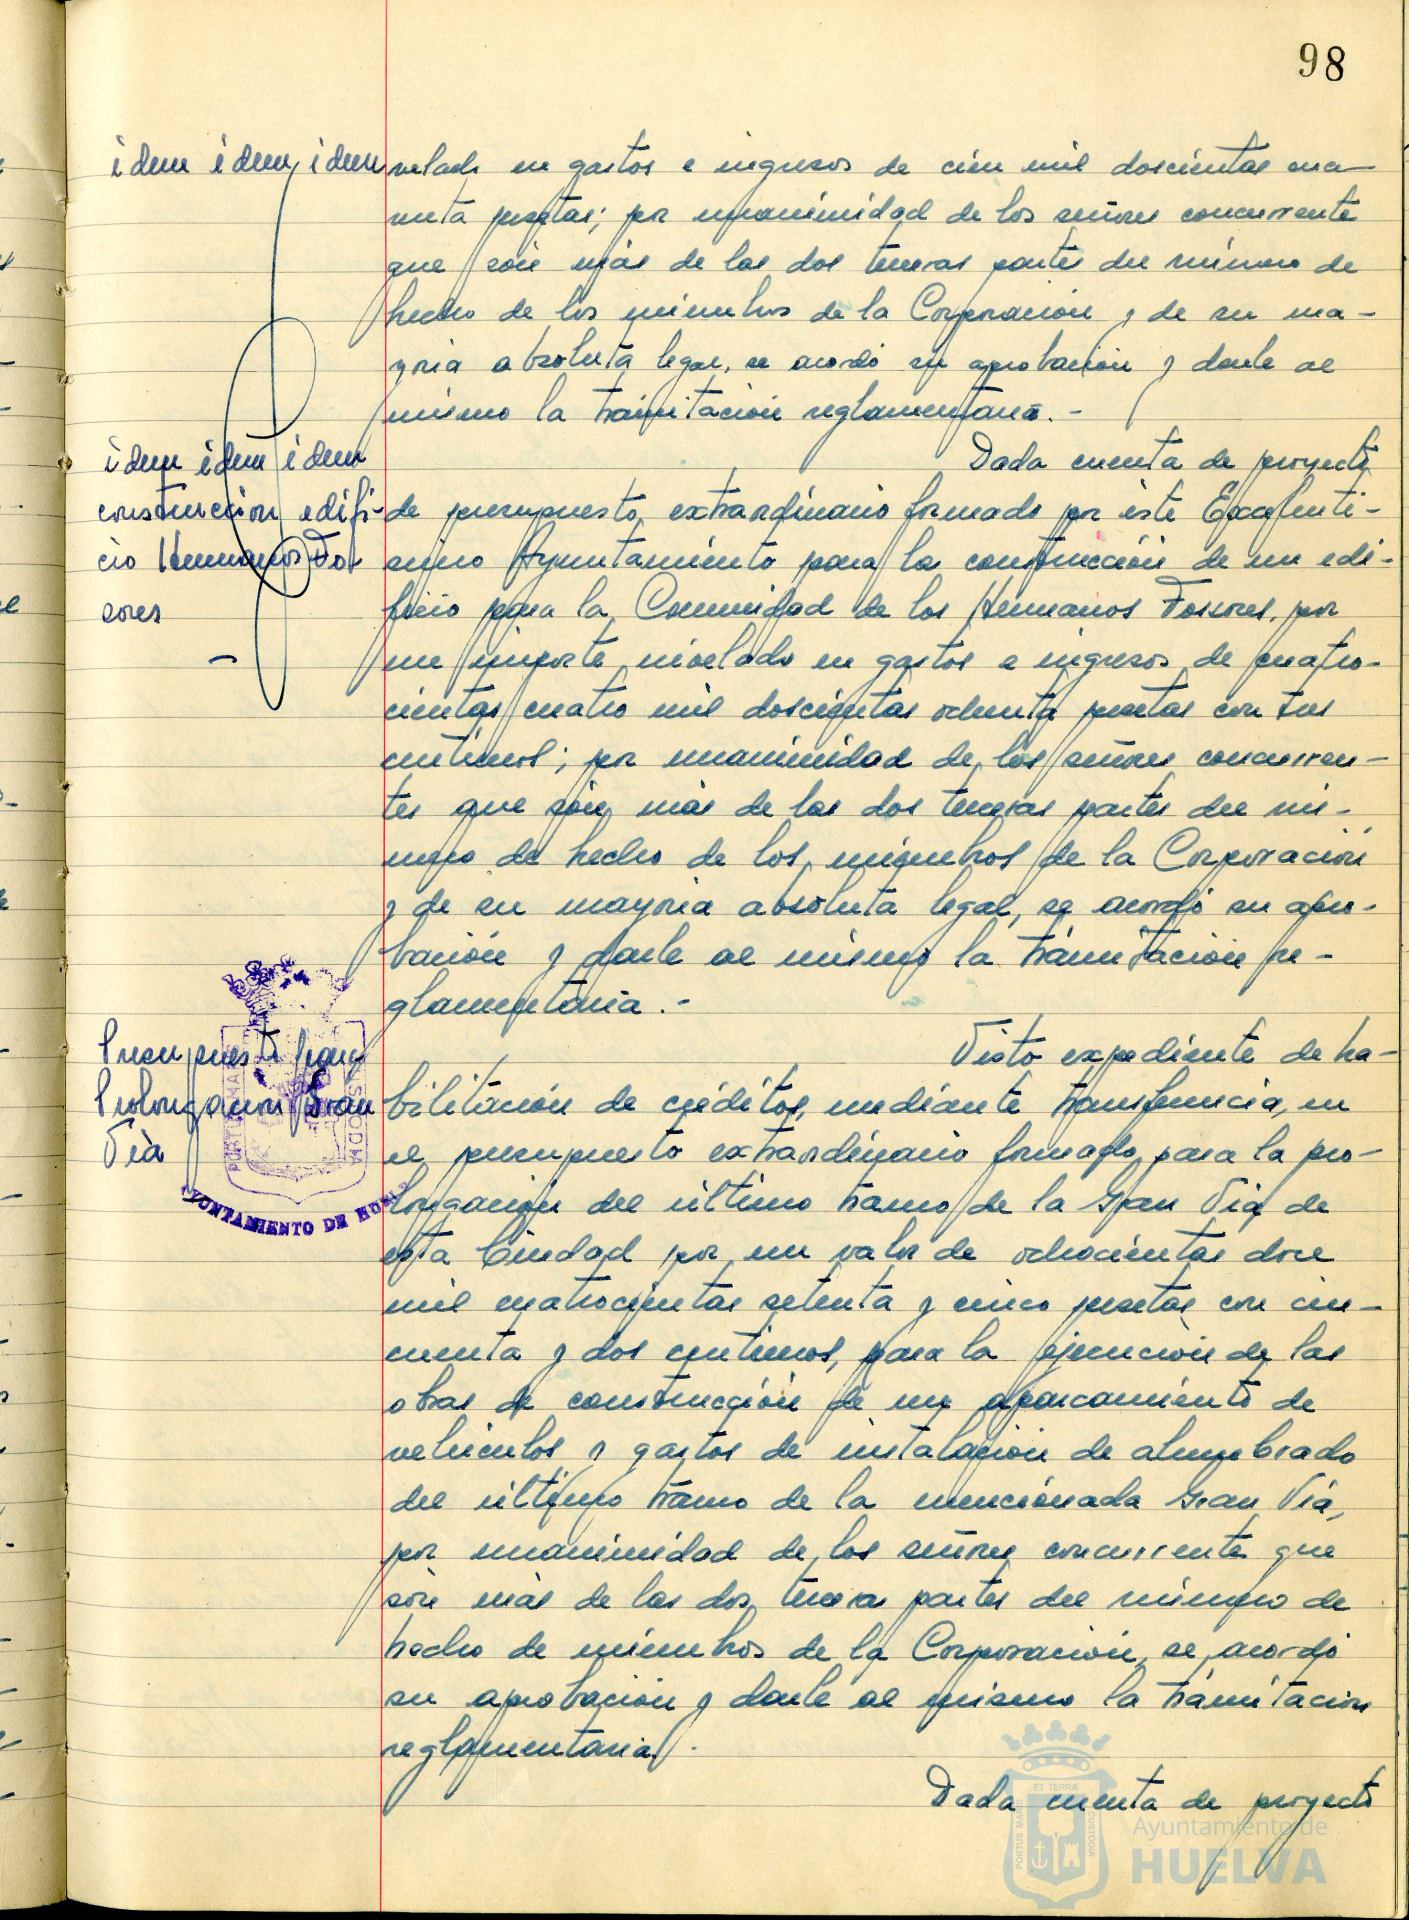 98
idem idem idem
velado en gastos e ingresos de cien mil doscientas cua-
renta pesetas; por unanimidad de los señores concurrente
que són más de las dos terceras partes del número de
hecho de los miembros de la Corporación y de su ma-
yoria absoluta legal, se acordó su aprobación y darle al
mismo la tramitación reglamentaria.-
idem idem idem
construccion edifi-
cio Hermanos Fo
sores
Dada cuenta de proyecto
de presupuesto extraordinario formado por éste Excelentí-
simo Ayuntamiento para la construcción de un edi-
ficio para la Comunidad de los Hermanos Fosores, por
un importe nivelado en gastos e ingresos de cuatro-
cientas cuatro mil doscientas ochenta pesetas con tres
centimos; por unanimidad de los señores concurren-
tes que són más de las dos terceras partes del nú-
mero de hecho de los miembros de la Corporación
y de su mayoria absoluta legal, se acordó su apro-
bación y darle al mismo la tramitación re-
glamentaria.-
Presupuesto para
Prolongacion Gran
Via
Visto expediente de ha-
bilitación de créditos, mediante transferencia, en
el presupuesto extraordinario formado para la pro-
longación del último tramo de la Gran Via de
esta Ciudad por un valor de ochocientas doce
mil cuatrocientas setenta y cinco pesetas con cin-
cuenta y dos centimos, para la ejecución de las
obras de construcción de un aparcamiento de
vehiculos y gastos de instalación de alumbrado
del último tramo de la mencionada Gran Via,
por unanimidad de los señores concurrente que
són más de las dos terceras partes del número de
hecho de miembros de la Corporación, se acordó
su aprobación y darle al mismo la tramitacion
reglamentaria.
Dada cuenta de proyecto
PORTUS MARIS
CUSTODIA
AYUNTAMIENTO DE HUELVA
ET TERRÆ
PORTUS MARIS
CUSTODIA
Ayuntamiento de
HUELVA